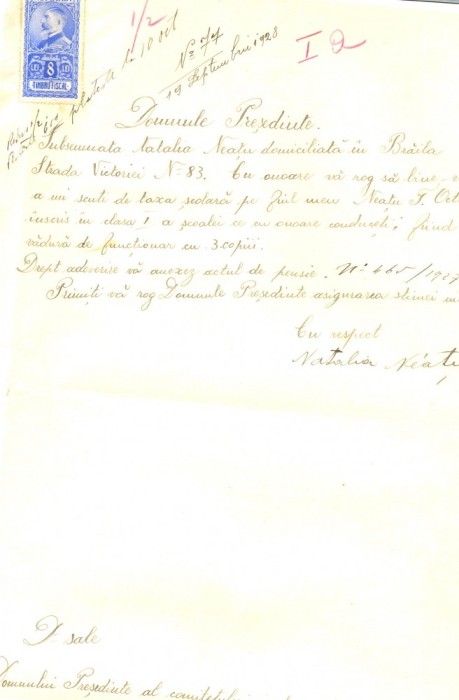 1/2
I 2
LEI 8 LEI
TIMBRU FISCAL
plateste la 10 oct
No 77
19 Septembrie 1928
Domnule Preşedinte.
Subsemnata Natalia Neaţu domiciliată în Brăila
Strada Victoriei No 83. Cu onoare vă rog să bine-v
a mi scuti de taxa şcolară pe fiul meu Neaţu F. Oct
înscris în clasa I a şcoalei ce cu onoare conduceţi; fiind
văduvă de funcţionar cu 3 copii.
Drept adeverire vă anexez actul de pensie. No 465/1927
Primiţi vă rog Domnule Preşedinte asigurarea stimei
Cu respect
Natalia Neaţu
D-sale
Domnului Preşedinte al comitetului